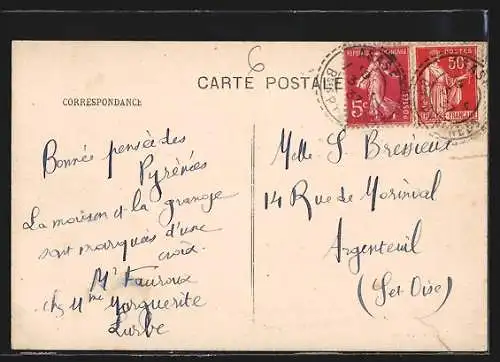 6
CARTE POSTALE
CORRESPONDANCE
REPUBLIQUE FRANÇAISE
5c
POSTES
POSTES
50c
Bonne pensée des
Pyrénées
La maison et la grange
sont marqués d'une
croix.
Mr Fauroux
chez Mme Marguerite
Lurbe
Mlle S Bressieux
14 Rue de Morinval
Argenteuil
(Set Oise)